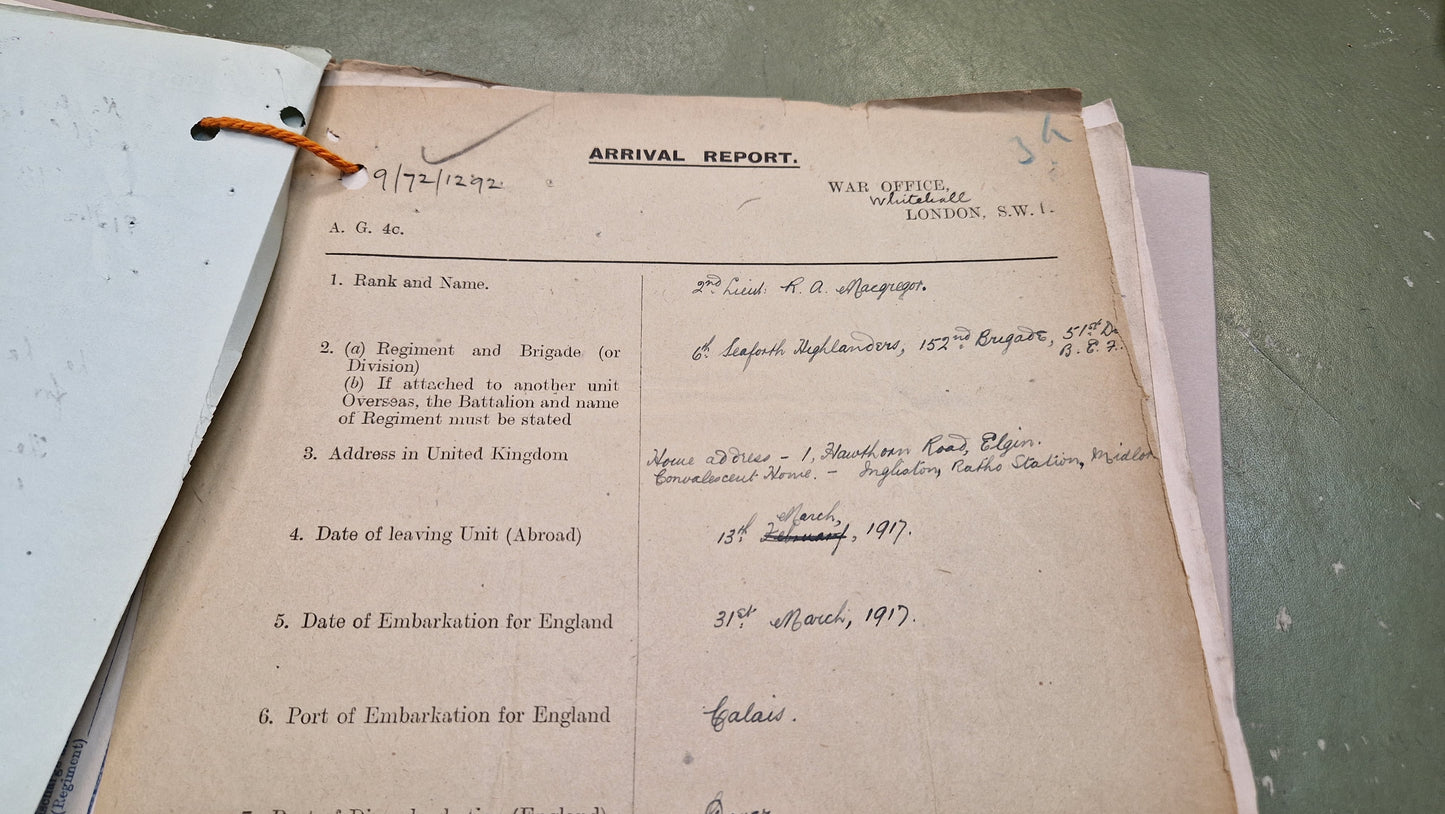 ARRIVAL REPORT.
9/72/1292
WAR OFFICE,
Whitehall
LONDON, S.W.1.
A. G. 4c.
1. Rank and Name.
2nd Lieut: R. A. Macgregor.
2. (a) Regiment and Brigade (or
Division)
(b) If attached to another unit
Overseas, the Battalion and name
of Regiment must be stated
6th Seaforth Highlanders, 152nd Brigade, 51st
B. E. F.
3. Address in United Kingdom
Home address - 1, Hawthorn Road, Elgin.
Convalescent Home. - Ingliston, Ratho Station,
4. Date of leaving Unit (Abroad)
March,
13th February, 1917.
5. Date of Embarkation for England
31st March, 1917.
6. Port of Embarkation for England
Calais.
(Regiment)